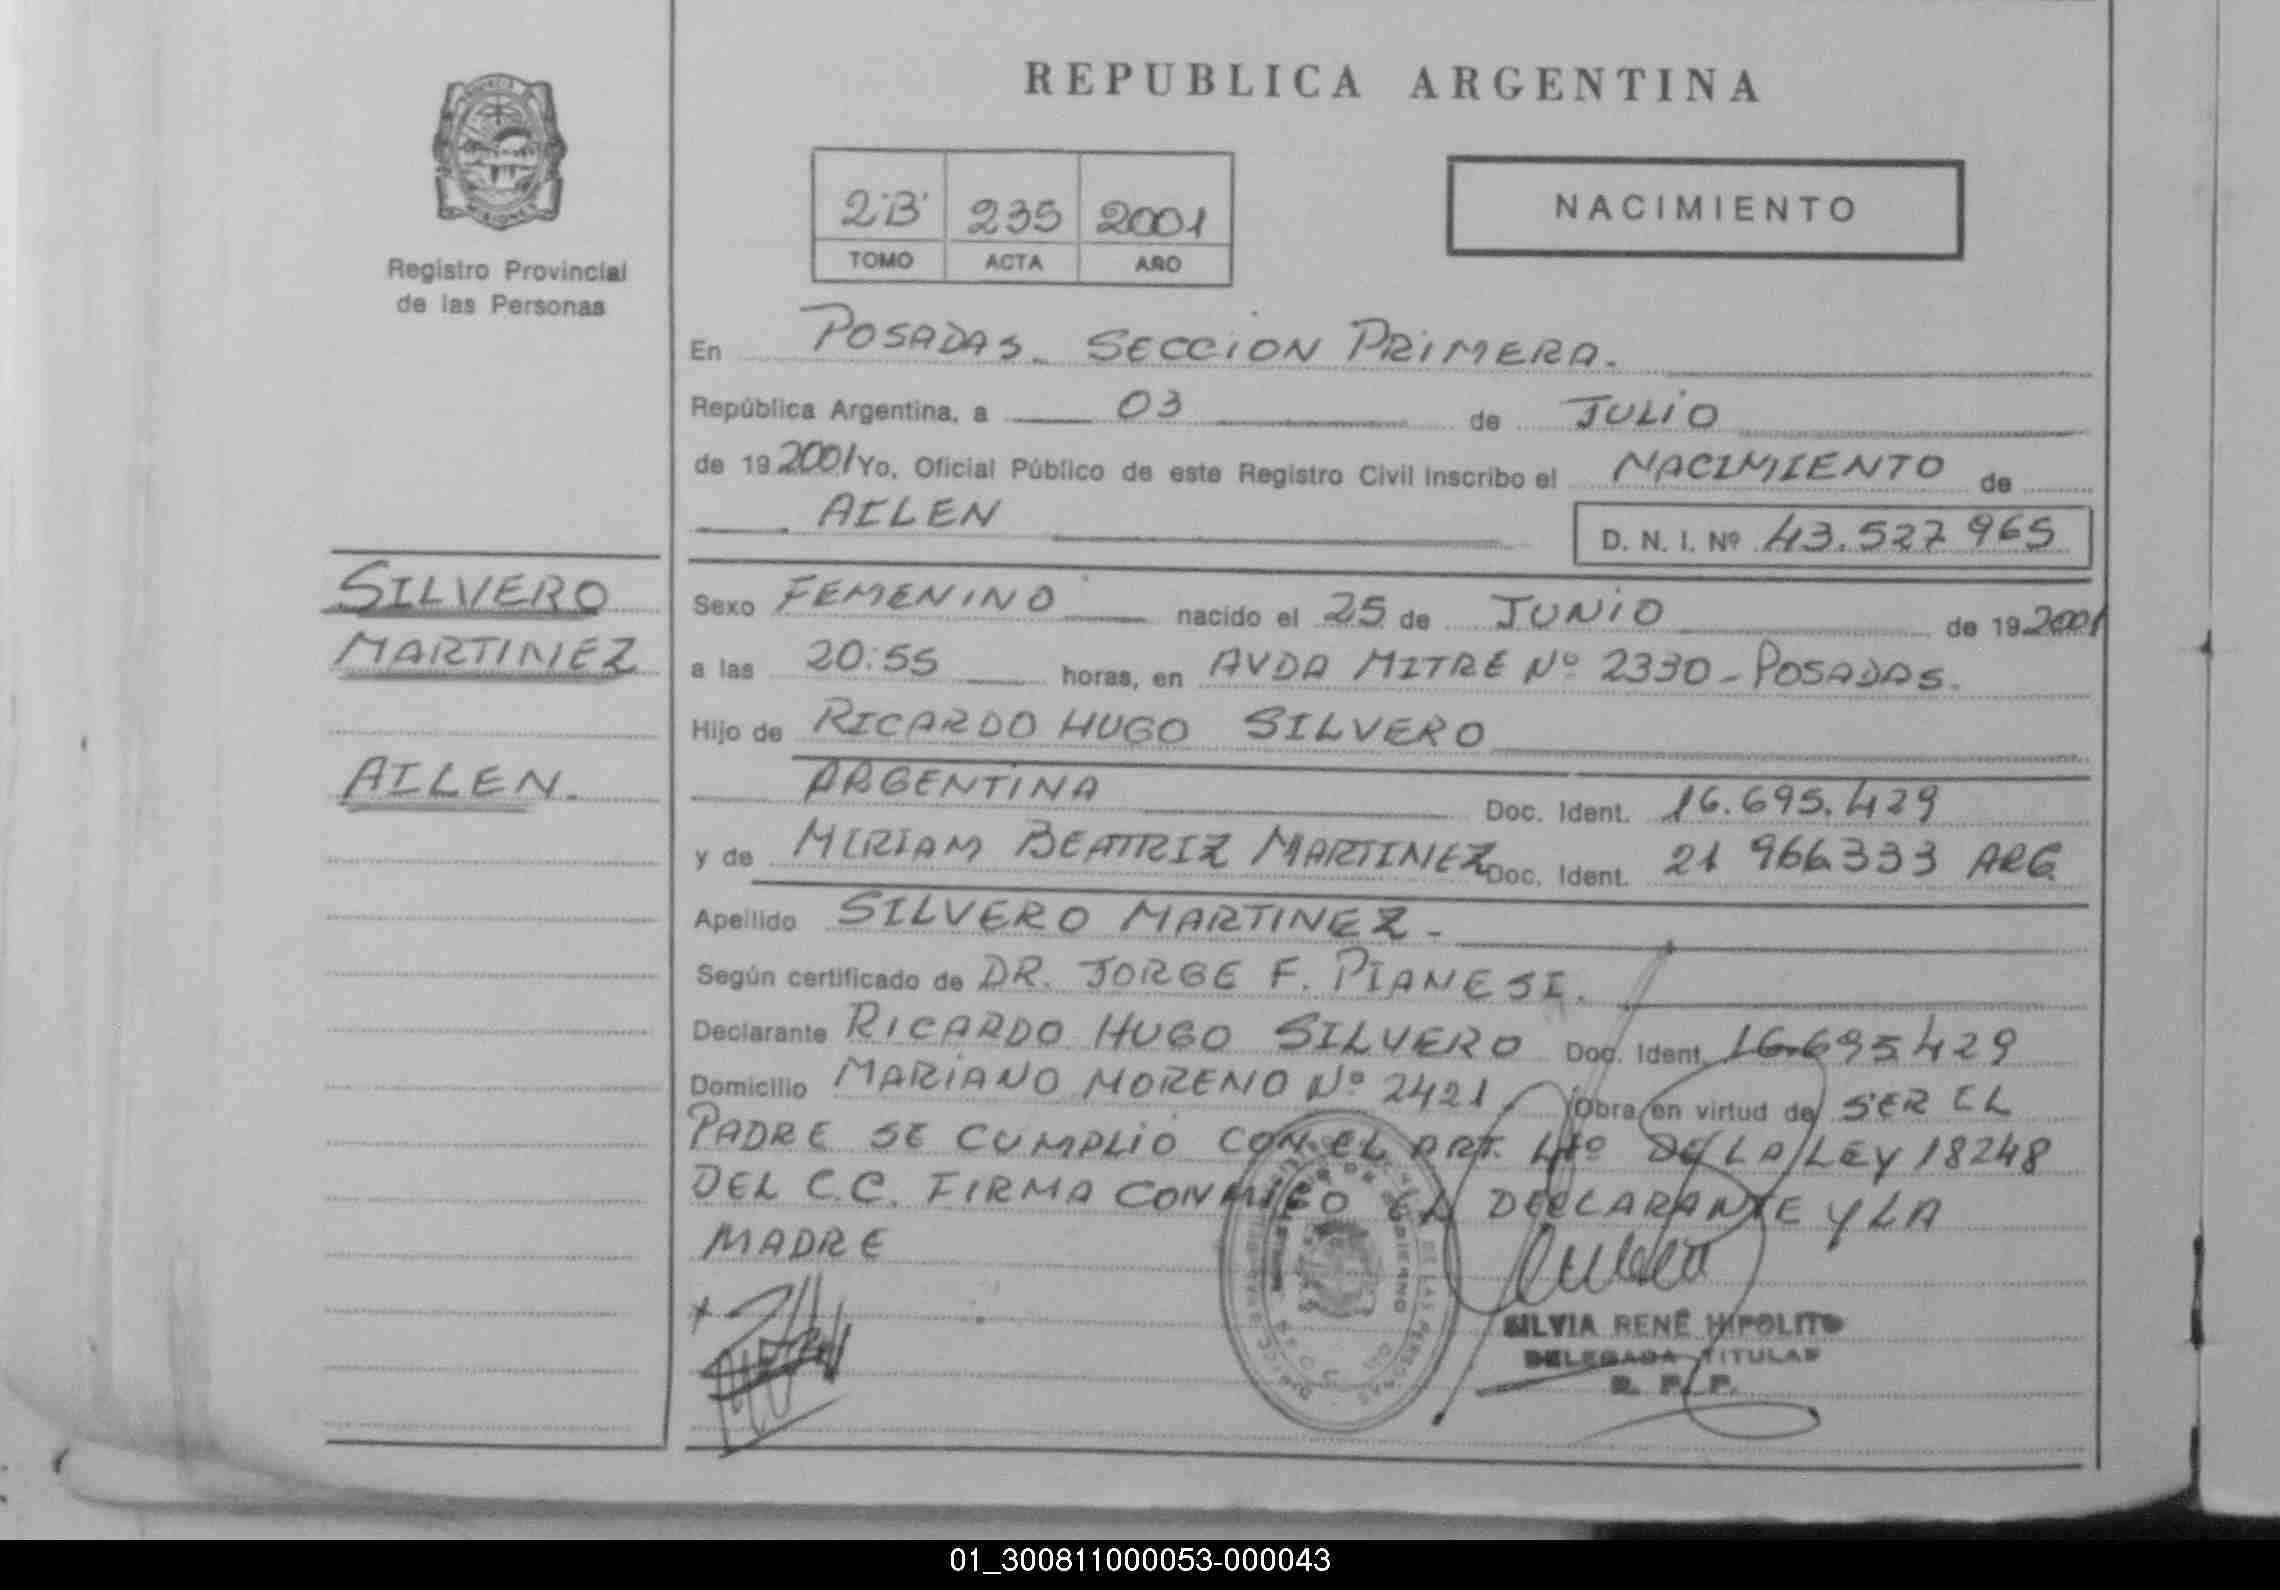 REPUBLICA ARGENTINA
2"B" 235 2001
TOMO ACTA AÑO
NACIMIENTO
Registro Provincial
de las Personas
En POSADAS. SECCION PRIMERA.
República Argentina, a 03 de JULIO
de 19 2001 Yo, Oficial Público de este Registro Civil Inscribo el NACIMIENTO de
AILEN D. N. I. Nº 43.527 965
SILVERO
MARTINEZ
AILEN.
Sexo FEMENINO nacido el 25 de JUNIO de 19 2001
a las 20:55 horas, en AVDA MITRE Nº 2330 - POSADAS.
Hijo de RICARDO HUGO SILVERO
ARGENTINA Doc. Ident. 16.695.429
y de MIRIAM BEATRIZ MARTINEZ Doc. Ident. 21 966.333 ARG
Apellido SILVERO MARTINEZ -
Según certificado de DR. JORGE F. PIANESI.
Declarante RICARDO HUGO SILVERO Doc. Ident. 16.695.429
Domicilio MARIANO MORENO Nº 2421 Obra en virtud de SER EL
PADRE SE CUMPLIO CON EL ART. 4º DE LA LEY 18248
DEL C.C. FIRMA CONMIGO EL DECLARANTE Y LA
MADRE
SILVIA RENÉ HIPOLITO
DELEGADA TITULAR
R. P. P.
01_300811000053-000043